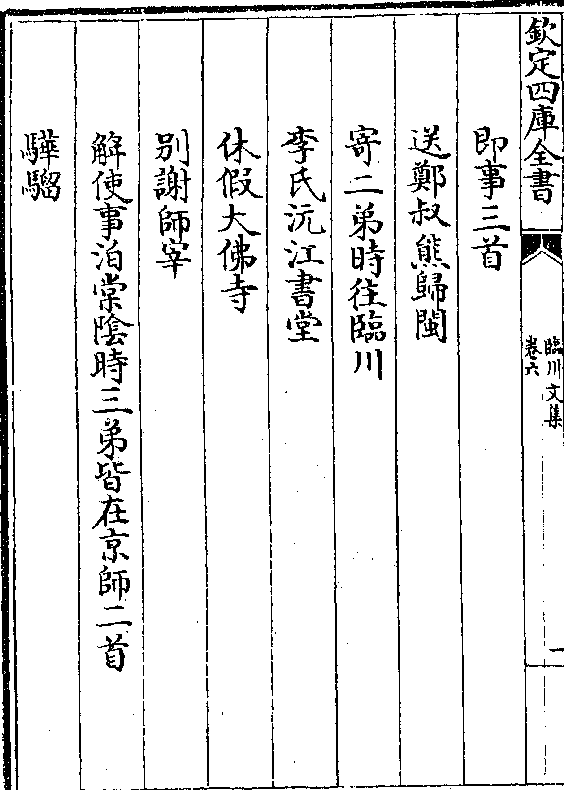 欽定四庫全書
臨川文集
卷六
一
即事三首
送鄭叔熊歸閩
寄二弟時往臨川
李氏沅江書堂
休假大佛寺
別謝師宰
解使事泊棠陰時三弟皆在京師二首
驊騮